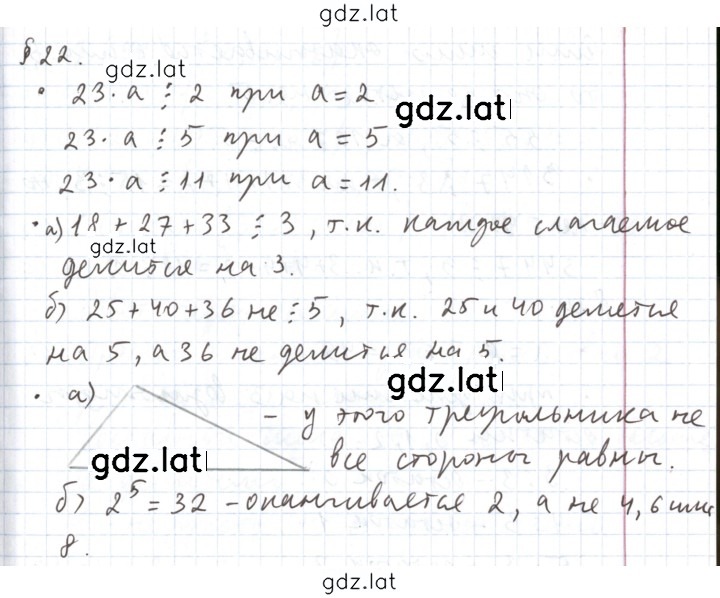 gdz.lat
§22.
gdz.lat
• 23·a ⋮ 2 при a=2
gdz.lat
23·a ⋮ 5 при a = 5
23·a ⋮ 11 при a=11.
• а) 18 + 27 + 33 ⋮ 3, т.к. каждое слагаемое
gdz.lat
делится на 3.
б) 25+40+36 не ⋮ 5, т.к. 25 и 40 делятся
на 5, а 36 не делится на 5.
gdz.lat
• а)
– у этого треугольника не
все стороны равны.
gdz.lat
б) 2⁵ = 32 – оканчивается 2, а не 4, 6 или
8.
gdz.lat